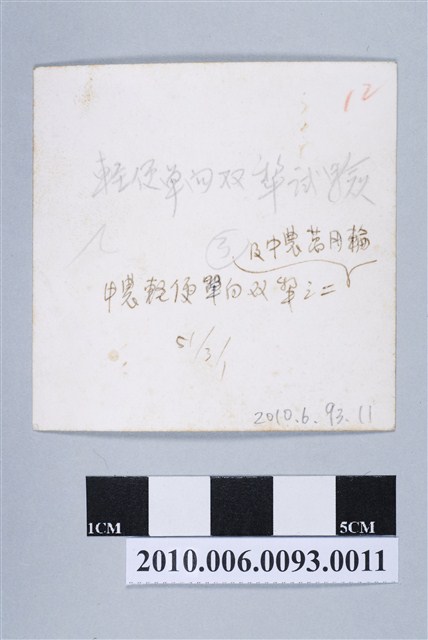 12
輕便單向双犂試驗
③ 及中農萬用輪
中農輕便單向双犂之二
51/3/1
2010.6.93.11
1CM 5CM
2010.006.0093.0011